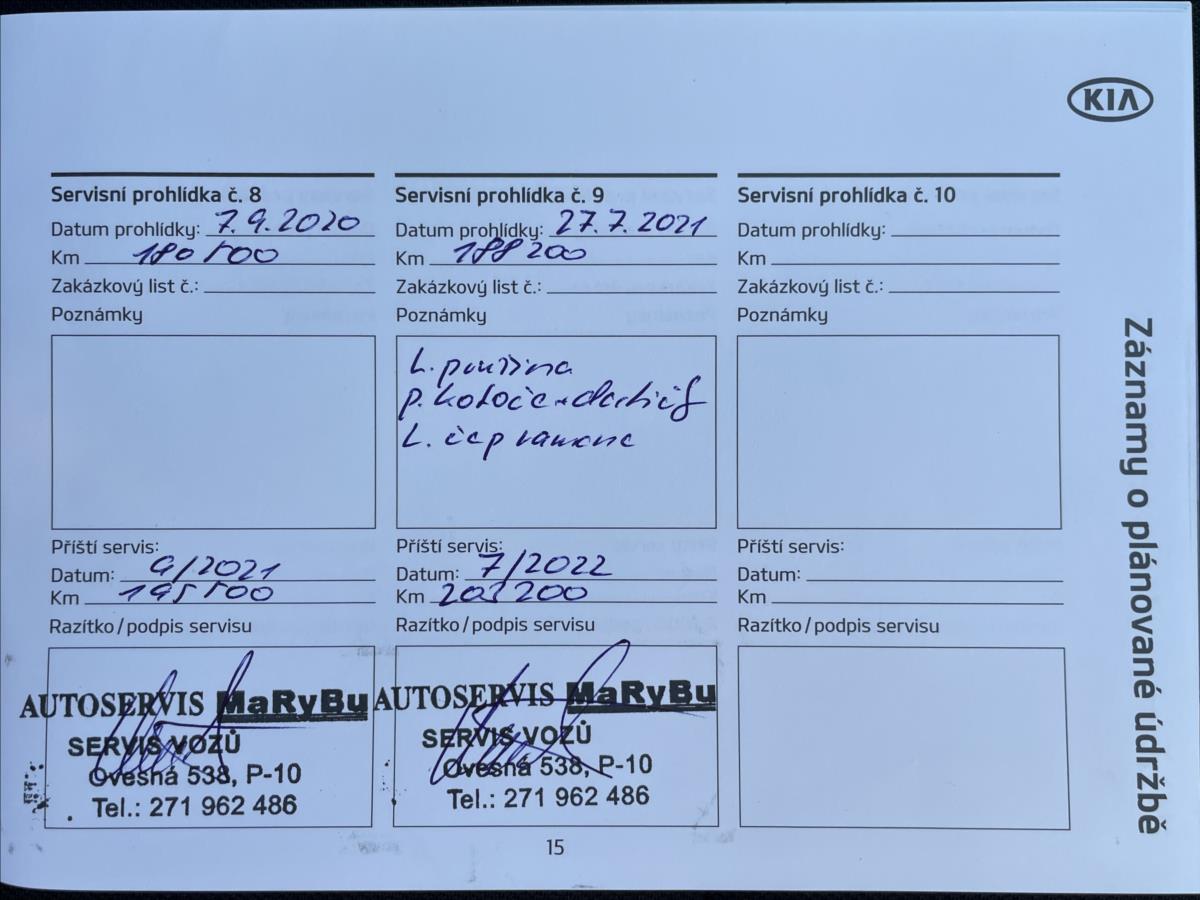 KIA
Záznamy o plánované údržbě
Servisní prohlídka č. 8
Datum prohlídky: 7.9.2020
Km 180500
Zakázkový list č.:
Poznámky
Příští servis:
Datum: 9/2021
Km 195500
Razítko / podpis servisu
AUTOSERVIS MaRyBu
SERVIS VOZŮ
Ovesná 538, P-10
Tel.: 271 962 486
Servisní prohlídka č. 9
Datum prohlídky: 27.7.2021
Km 188200
Zakázkový list č.:
Poznámky
L. pružina
p. kotouče
L. čep ramene
Příští servis:
Datum: 7/2022
Km 203200
Razítko / podpis servisu
AUTOSERVIS MaRyBu
SERVIS VOZŮ
Ovesná 538, P-10
Tel.: 271 962 486
Servisní prohlídka č. 10
Datum prohlídky:
Km
Zakázkový list č.:
Poznámky
Příští servis:
Datum:
Km
Razítko / podpis servisu
15